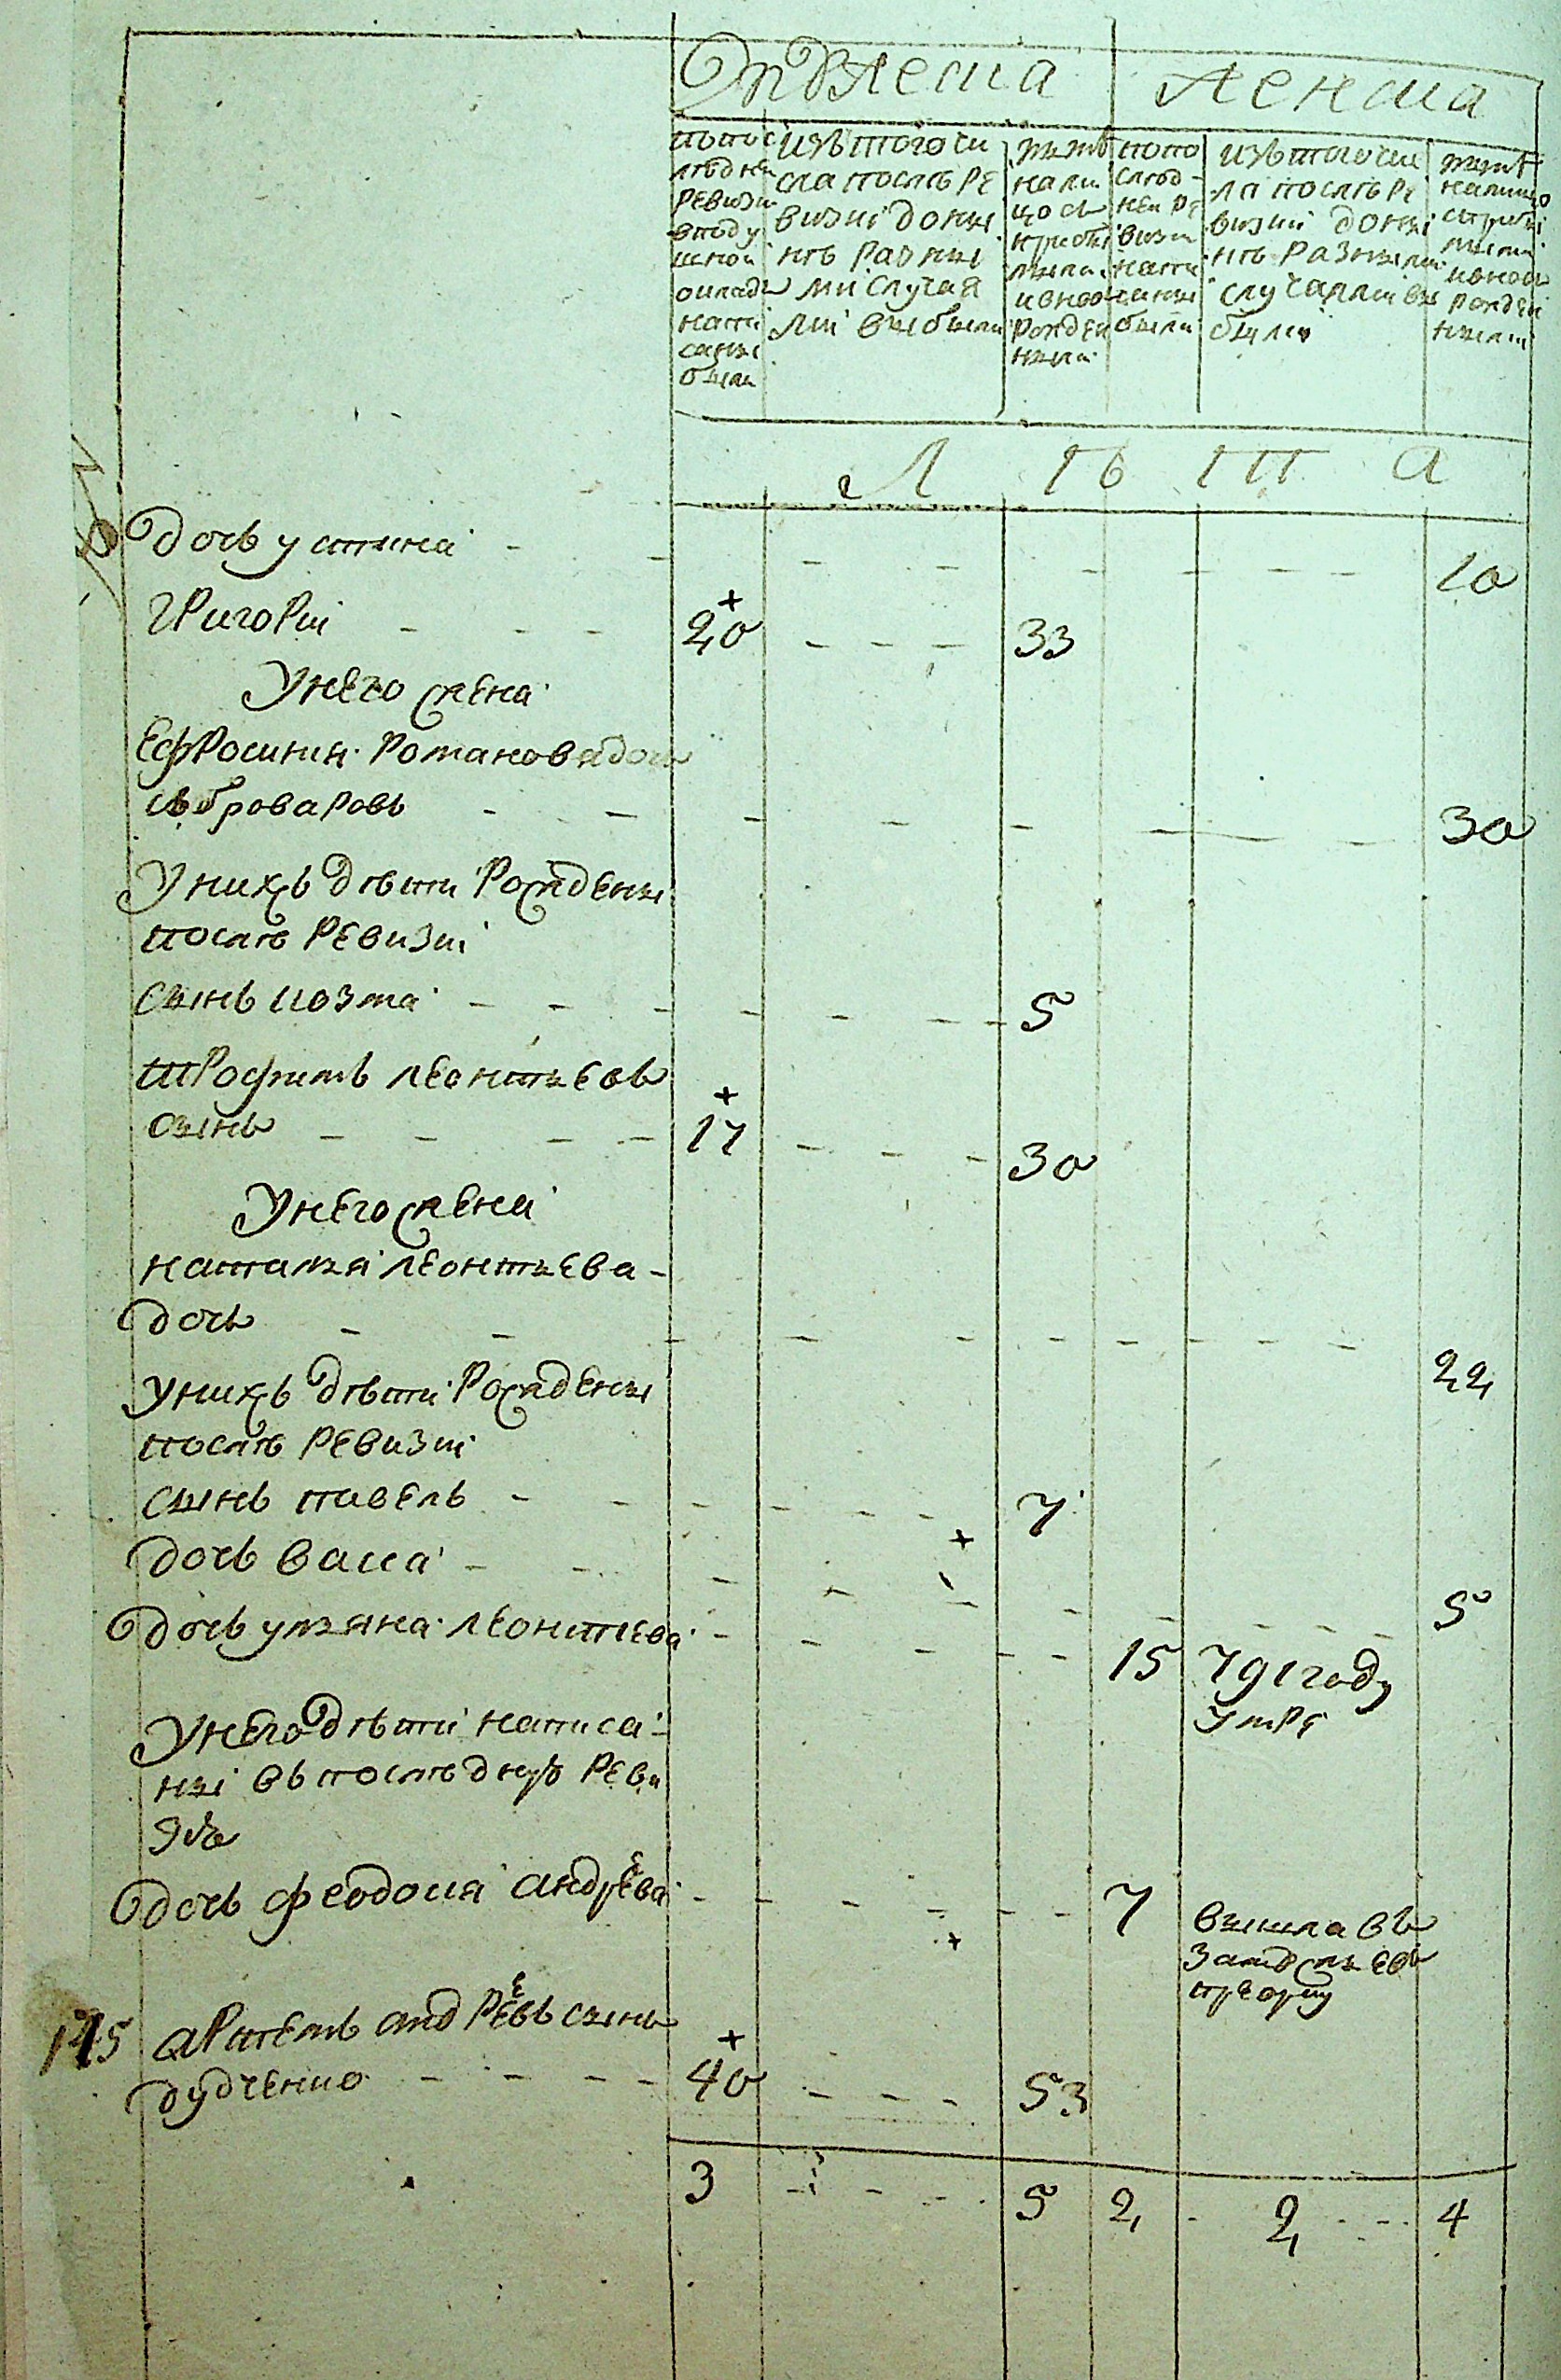 Мужеска Женска
попос
лѣдней
Ревизи
вподу
шной
окладъ
напи
саны
были
изъ того чи
сла послѣ ре
визіи до ны
нѣ разны
ми случая
ми выбыли
нынѣ
нали
цо съ
прибы
лыми
и вновь
рожден
ными
попо
слѣд-
ней ре
визіи
напи
саны
были
изъ того чис
ла послѣ ре
визіи до ны
нѣ разными
случаями вы
были
нынѣ
налицо
съ прибы
лыми
и вновь
рожден
ными
Лѣта
дочь устина 10
Григорій 20 33
У него жена
Ефросинія Романова дочь
съ броваровъ 30
У нихъ дѣти рожденны
послѣ ревизіи
сынъ козма 5
трофимъ леонтьевъ
сынъ 17 30
У него жена
наталья леонтьева
дочь 22
У нихъ дѣти рожденны
послѣ ревизіи
сынъ павелъ 7
дочь васса 5
дочь ульяна леонтьева 15 791 году
умре
У него дѣти написа
ны въ последную реви
зію
дочь феодосія андрѣева 7 вышла въ
замужъ въ
145 артемъ андрѣевъ сынъ
дудченко 40 53
3 5 2 2 4